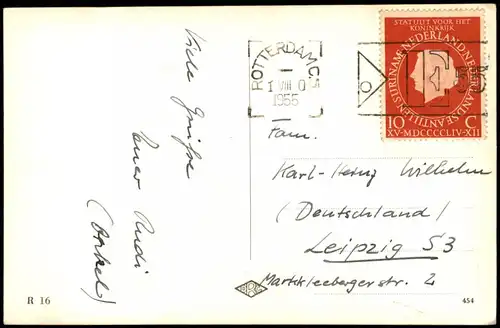 Viele Grüße
Euer Rudi
(Onkel)
R 16
ROTTERDAM C.S
1 VIII 0
1955
STATUUT VOOR HET
KONINKRIJK
NEDERLAND·NEDERLANDSE ANTILLEN·SURINAME
10 C
XV-MDCCCCLIV-XII
Fam.
Karl-Heinz Wilhelm
(Deutschland)
Leipzig S3
Markkleebergerstr. 2
454